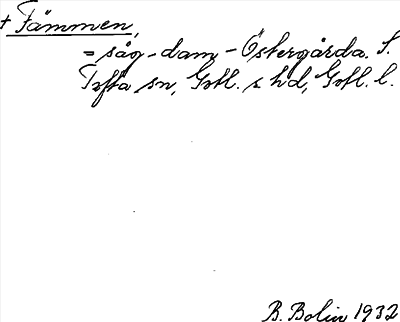 + Fämmen,
= såg-dam - Östergårda. S.
Tofta sn, Gotl. s hd, Gotl. l.
B. Bolin 1932